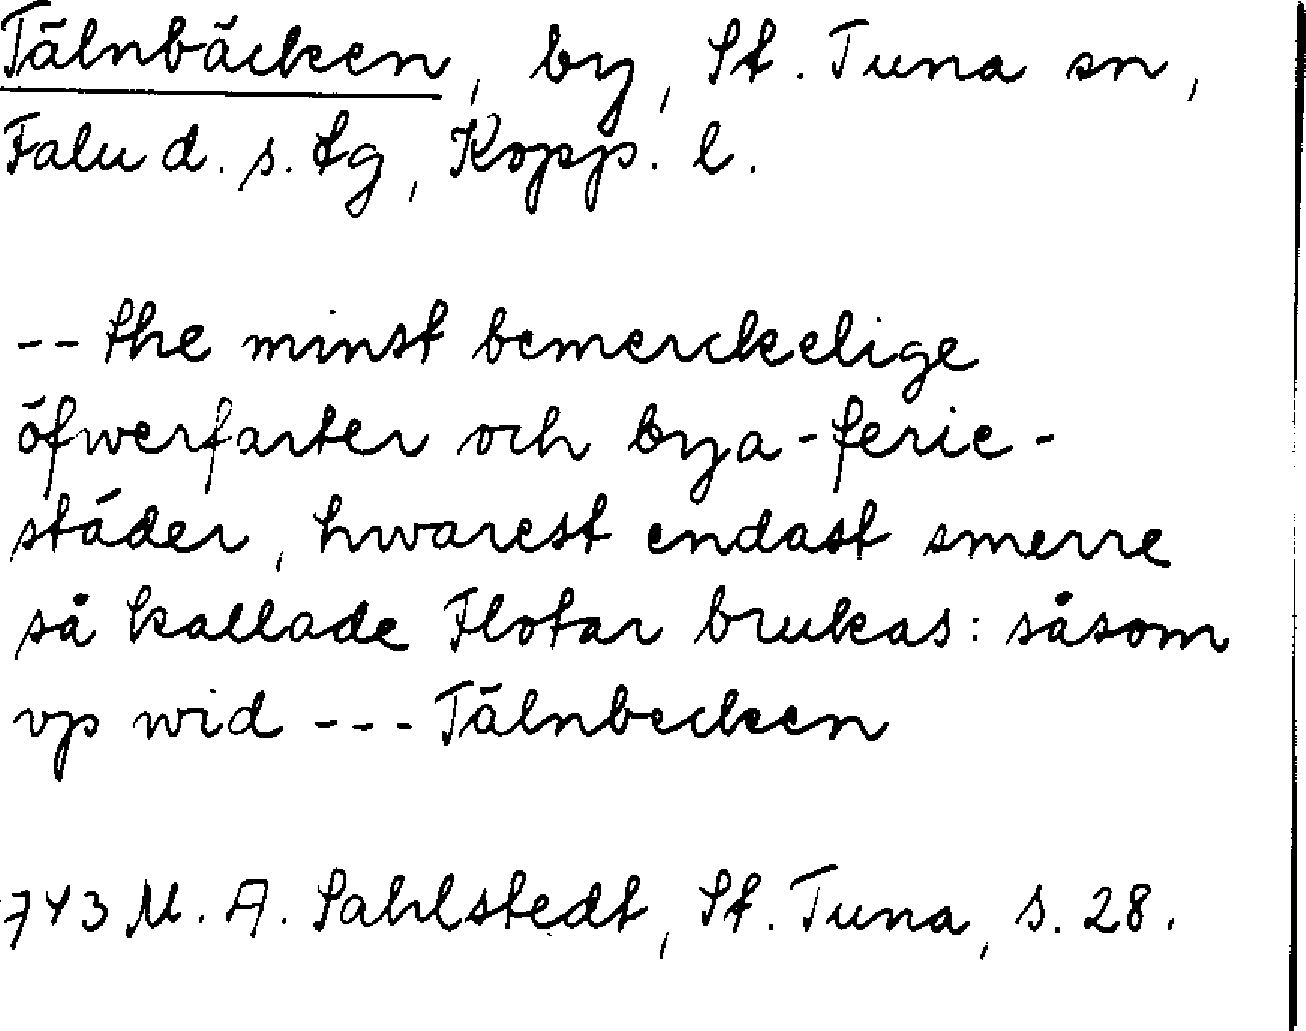 Tälnbäcken, by, St. Tuna sn,
Falu d. s. tg, Kopp. l.
-- the minst bemerckelige
öfwerfarter och bya-ferie-
städer, hwarest endast smerre
så kallade Flotar brukas: såsom
vp wid --- Tälnbecken
743 M. A. Sahlstedt, St. Tuna, s. 28.